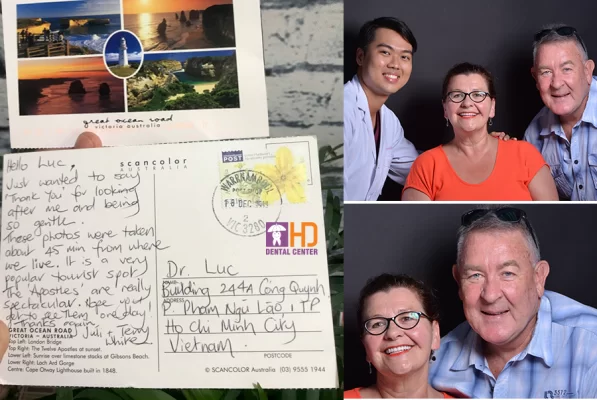 great ocean road
victoria australia
scancolor
AUSTRALIA
POST
WARRNAMBOOL
18 DEC 2015
VIC 3280
HD
DENTAL CENTER
Hello Luc,
Just wanted to say
'Thank you' for looking
after me and being
so gentle.
These photos were taken
about 45 min from where
we live. It is a very
popular tourist spot,
The 'Apostles' are really
spectacular. Hope you
get to see them one day!
Thanks again,
Juli + Terry
White
Dr. Luc
NAME
Building 244A Cống Quỳnh,
ADDRESS
P. Phạm Ngũ Lão, TP
Ho Chi Minh City
Vietnam.
POSTCODE
GREAT OCEAN ROAD
VICTORIA - AUSTRALIA
Top Left: London Bridge
Top Right: The Twelve Apostles at sunset.
Lower Left: Sunrise over limestone stacks at Gibsons Beach.
Lower Right: Loch Ard Gorge
Centre: Cape Otway Lighthouse built in 1848.
© SCANCOLOR Australia (03) 9555 1944